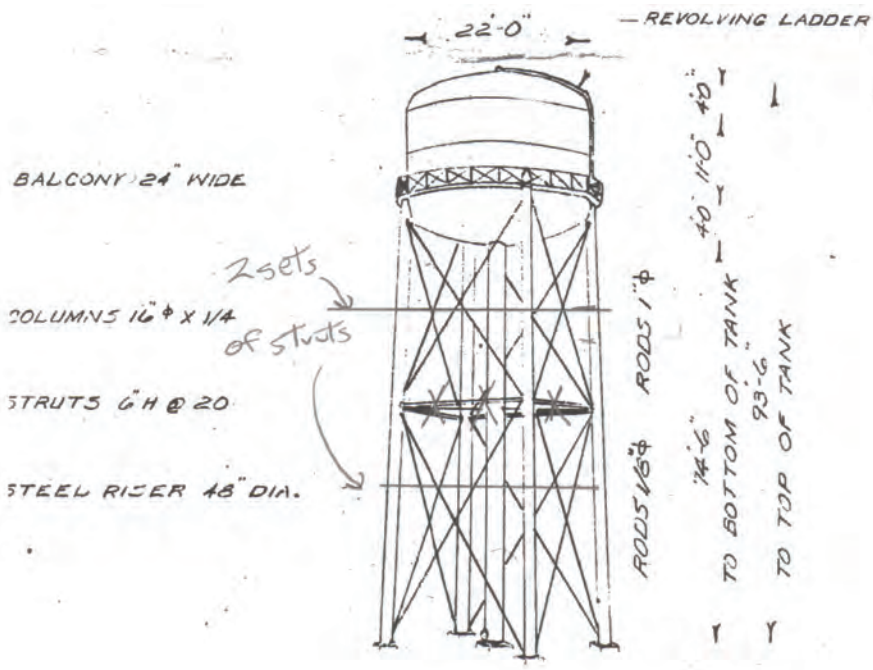 22'-0"
— REVOLVING LADDER
4'0"
11'0"
4'0"
BALCONY 24" WIDE
2 sets
of struts
COLUMNS 16" ϕ X 1/4
STRUTS 6" H @ 20
STEEL RISER 48" DIA.
RODS 1" ϕ
RODS 1/8" ϕ
74'-6"
TO BOTTOM OF TANK
93'-6"
TO TOP OF TANK